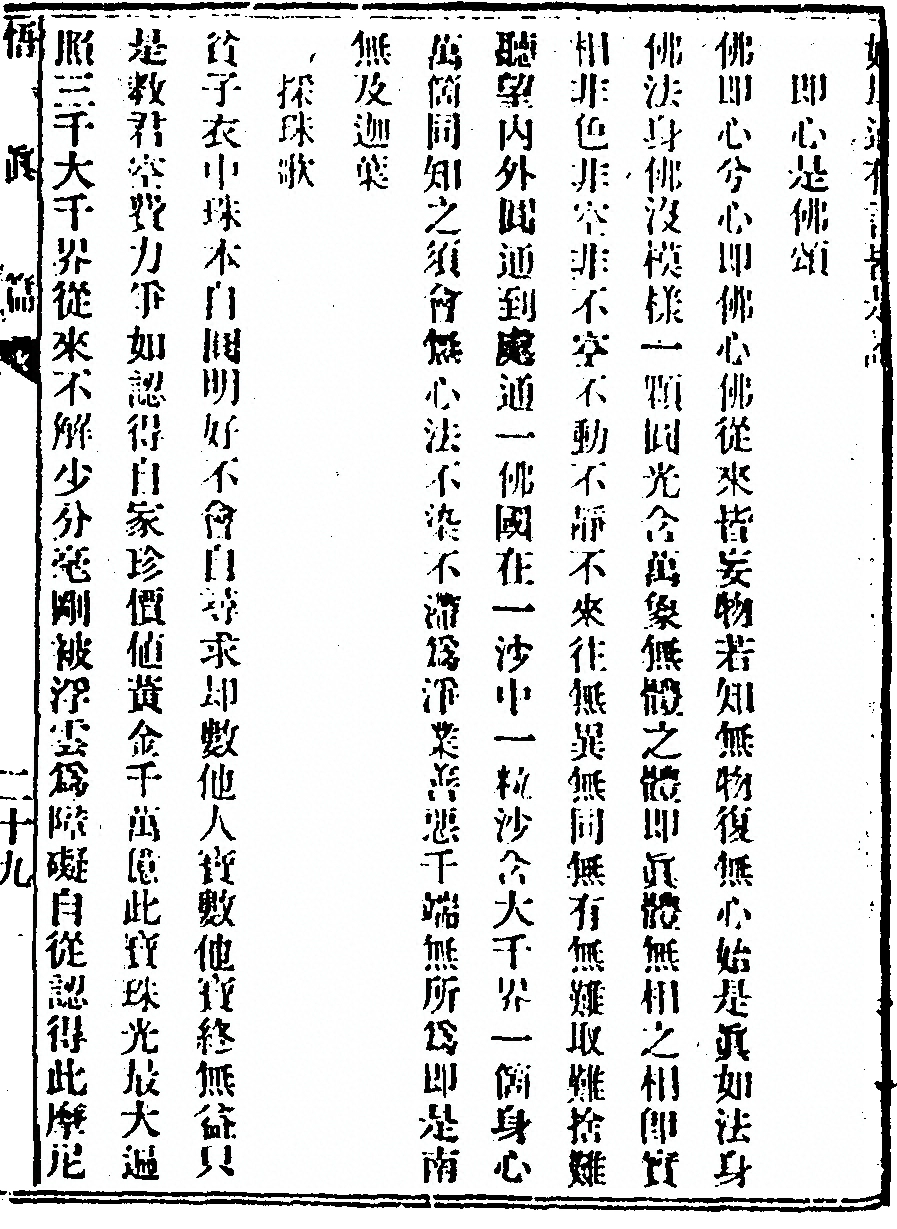 即心是佛頌
佛即心兮心即佛心佛從來皆妄物若知無物復無心始是眞如法身
佛法身佛沒模樣一顆圓光含萬象無體之體即眞體無相之相即實
相非色非空非不空不動不靜不來往無異無同無有無難取難捨難
聽望內外圓通到處通一佛國在一沙中一粒沙含大千界一箇身心
萬箇同知之須會無心法不染不滯爲淨業善惡千端無所爲即是南
無及迦葉
採珠歌
貧子衣中珠本自圓明好不會自尋求却數他人寶數他寶終無益只
是教君空費力爭如認得自家珍價值黃金千萬億此寶珠光最大遍
照三千大千界從來不解少分毫剛被浮雲爲障礙自從認得此摩尼
悟眞篇
二十九